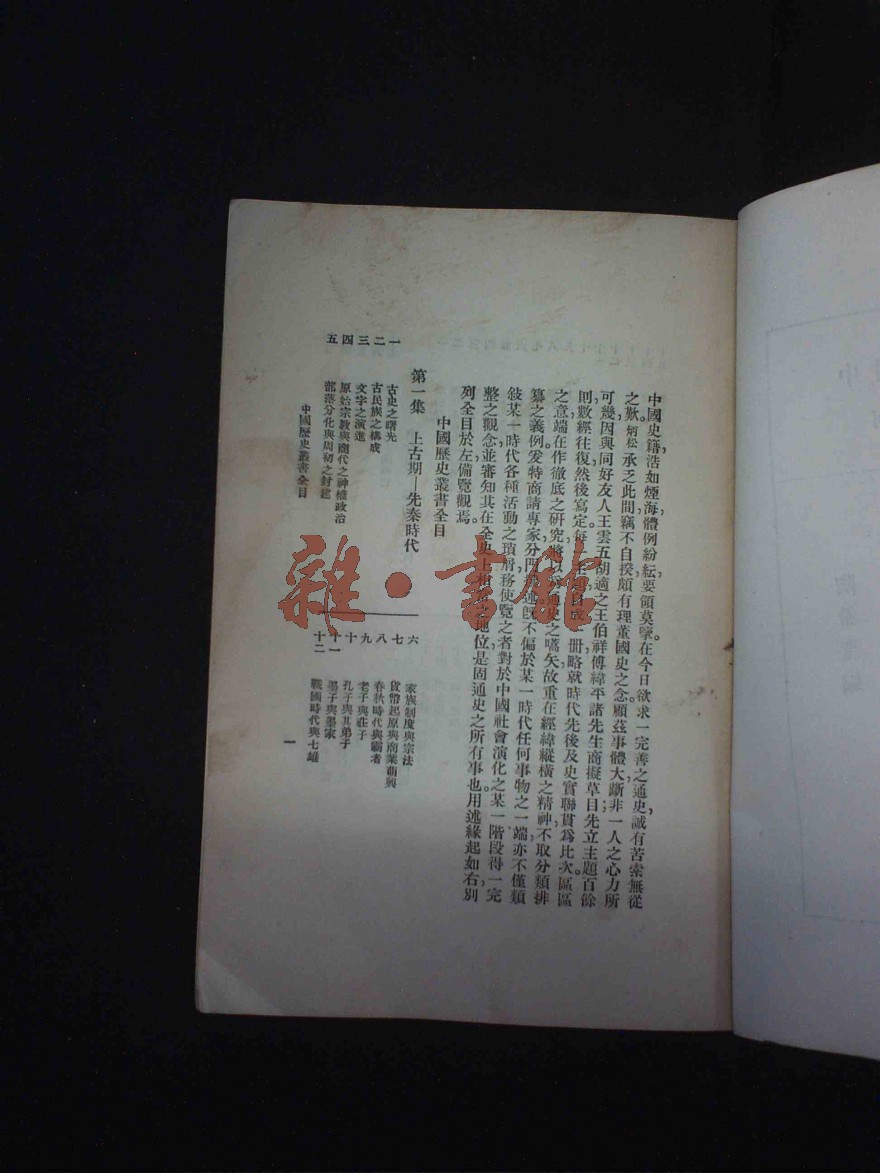 中國史籍,浩如煙海,體例紛紜,要領莫挈。在今日欲求一完善之通史,誠有苦索無從
之歎。炳松承乏此間,竊不自揆,頗有理董國史之念。顧茲事體大,斷非一人之心力所
可幾,因與同好友人王雲五胡適之王伯祥傅緯平諸先生商擬草目,先立主題百餘
則,數經往復,然後寫定。每一主題自成一册,略就時代先後及史實聯貫爲比次。區區
之意,端在作徹底之研究,將以爲通史之嚆矢,故重在經緯縱橫之精神,不取分類排
纂之義例。爰特商請專家,分門撰述,旣不偏於某一時代任何事物之一端,亦不僅類
敍某一時代各種活動之瑣屑,務使覽之者對於中國社會演化之某一階段得一完
整之觀念,並審知其在全史上相當之地位,是固通史之所有事也。用述緣起如右,別
列全目於左,備覽觀焉。
中國歷史叢書全目
第一集 上古期—先秦時代
一 古史之曙光
二 古民族之構成
三 文字之演進
四 原始宗教與商代之神權政治
五 部落分化與周初之封建
六 家族制度與宗法
七 貨幣起原與商業萌興
八 春秋時代與霸者
九 老子與莊子
十 孔子與其弟子
十一 墨子與墨家
十二 戰國時代與七雄
中國歷史叢書全目
一
雜·書館